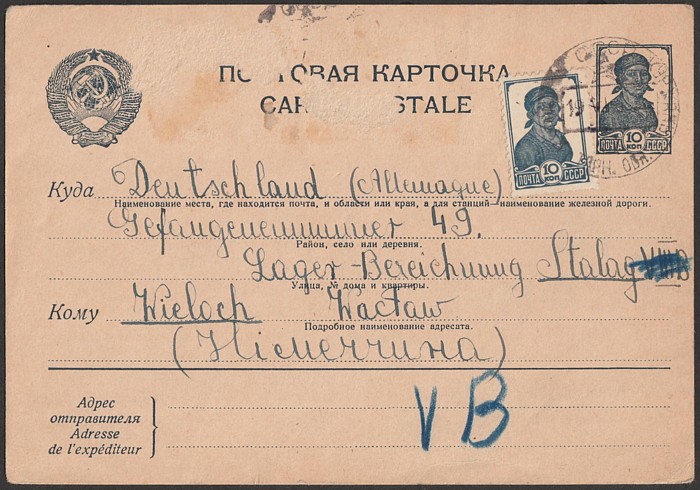 ПО ТОВАЯ КАРТОЧКА
CAR STALE
10 КОП
ПОЧТА СССР
10 КОП
ПОЧТА СССР
Куда Deutschland (Allemagne)
Наименование места, где находится почта, и области или края, а для станций—наименование железной дороги.
Gefangenennummer 49.
Район, село или деревня.
Lager-Bereichnung Stalag VIIIB
Улица, № дома и квартиры.
Кому Wieloch Wacław
Подробное наименование адресата.
(Німеччина)
VB
Адрес
отправителя
Adresse
de l'expéditeur